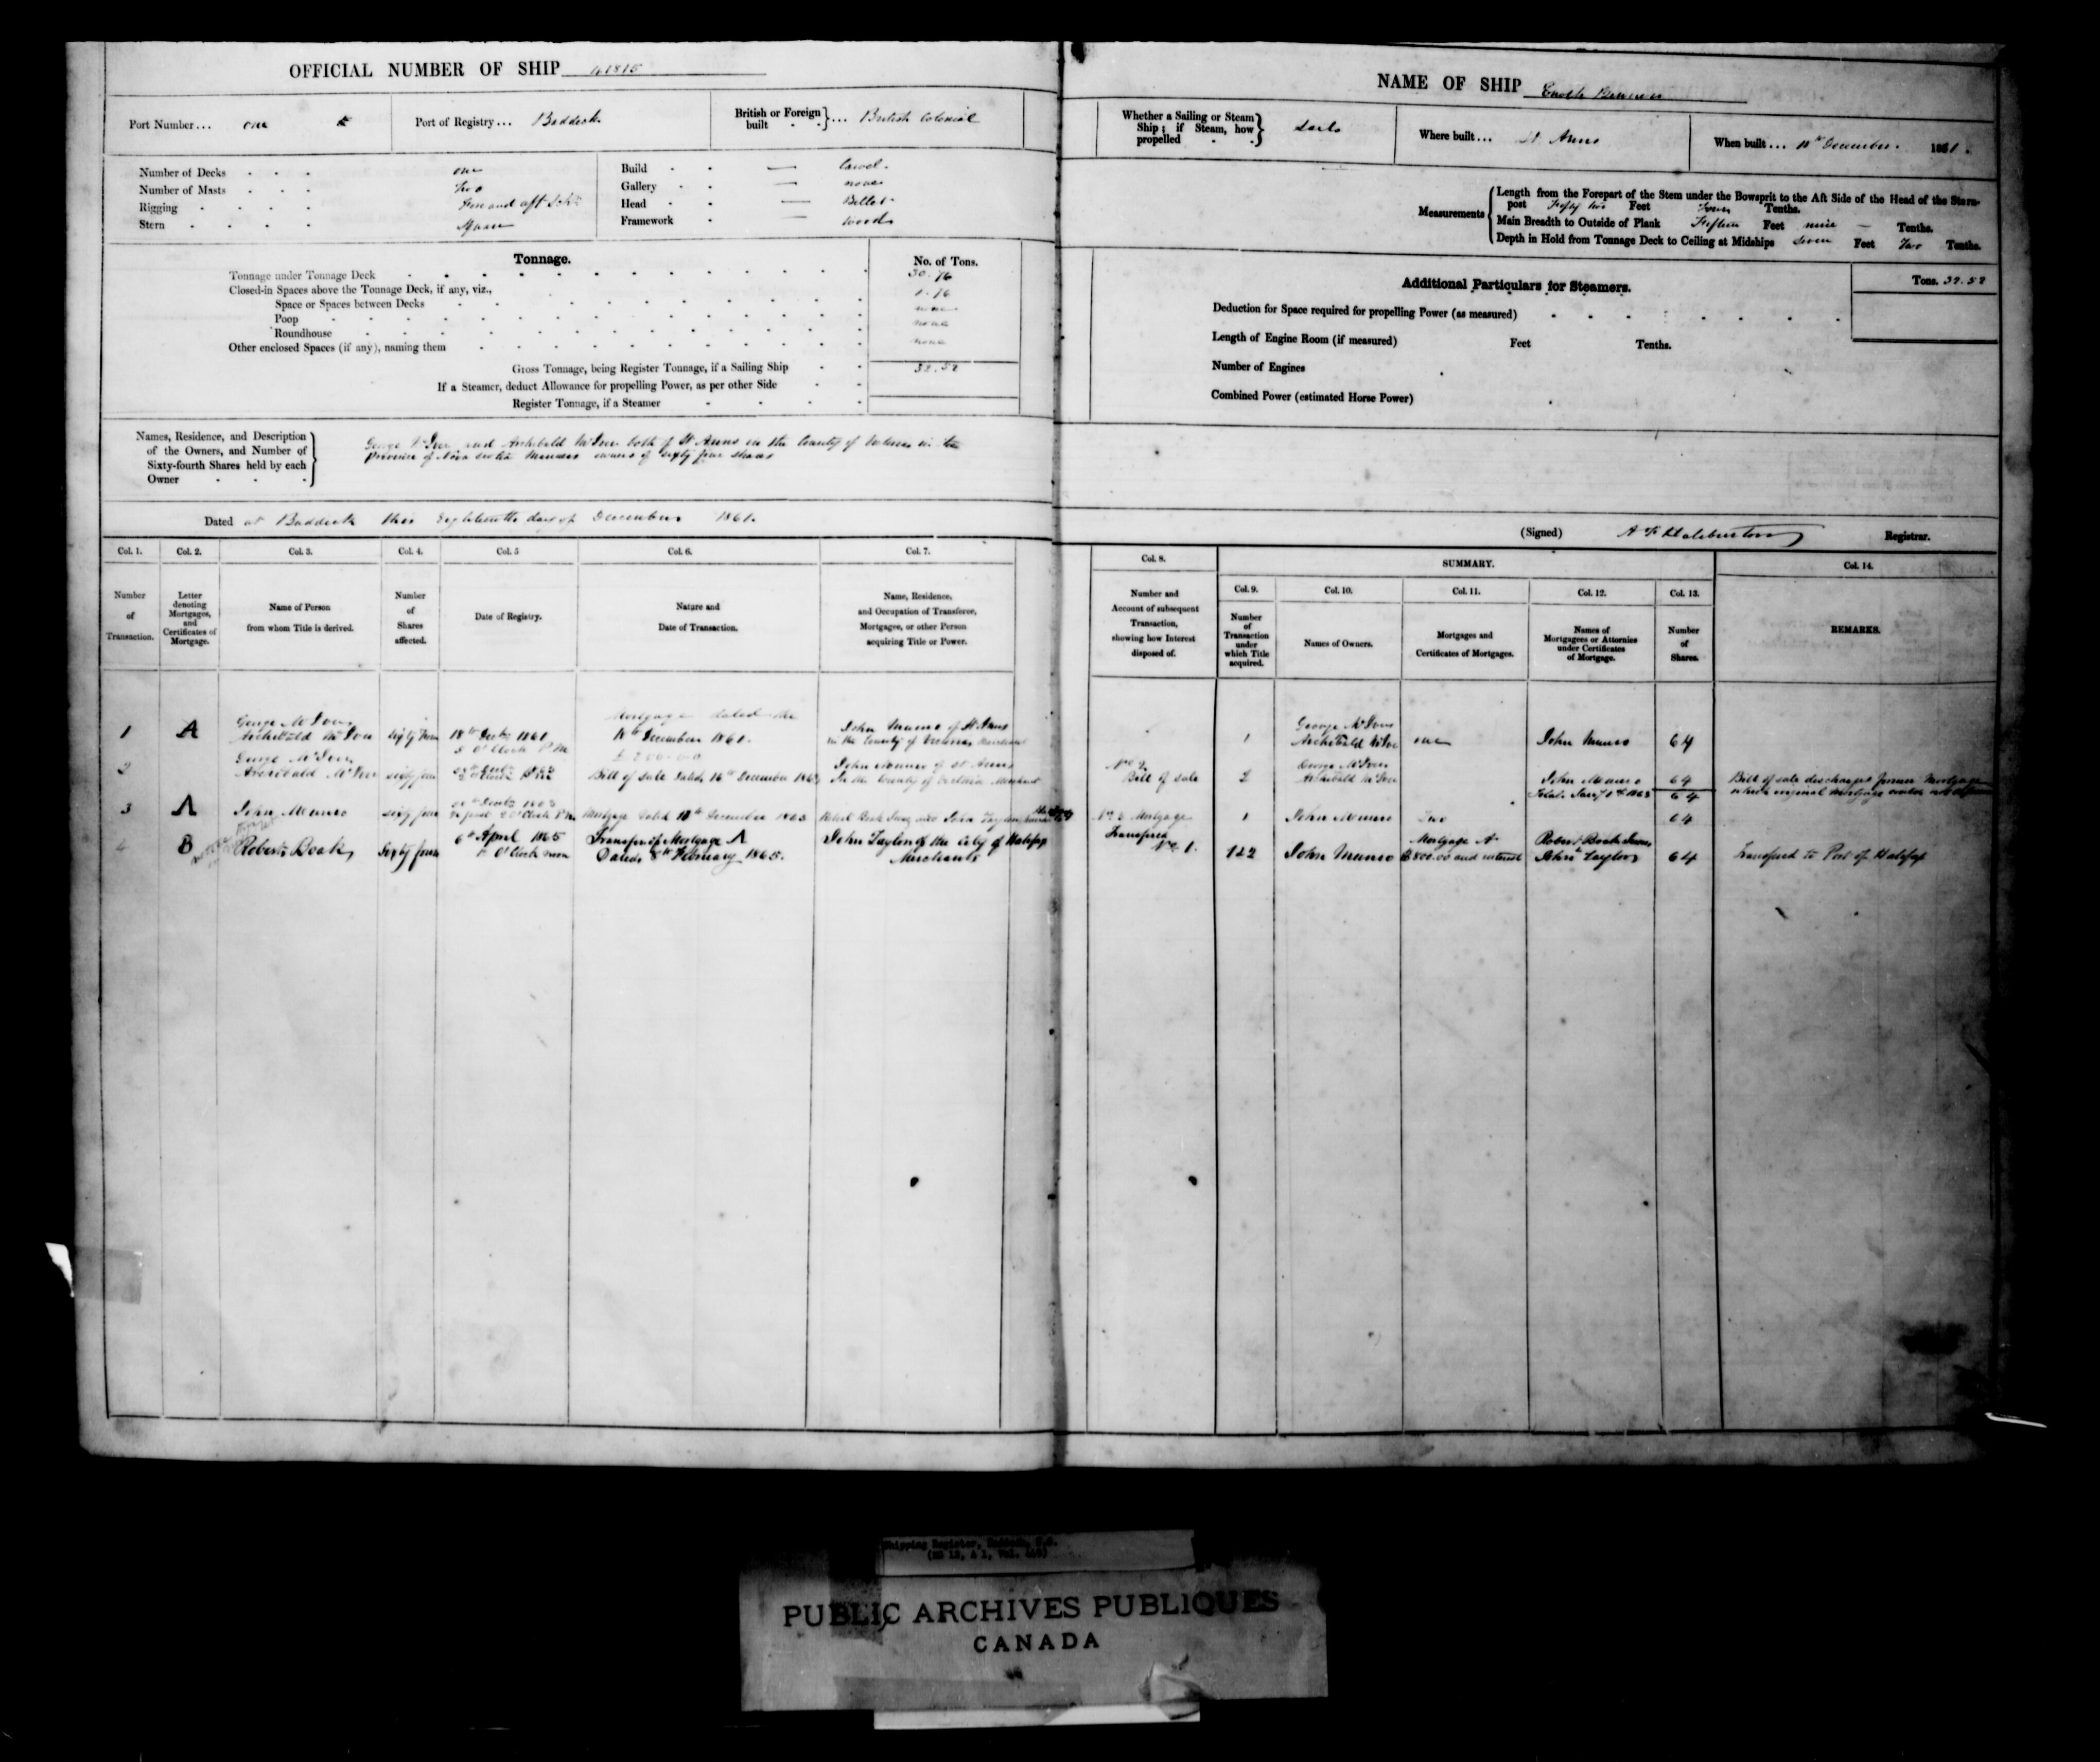 OFFICIAL NUMBER OF SHIP 41815
Port Number... one
Port of Registry... Baddeck
British or Foreign built ... British Colonial
Number of Decks one
Number of Masts Two
Rigging Fore and aft Schr
Stern Square
Build Carvel
Gallery none
Head Billet
Framework wood
Tonnage.
No. of Tons.
Tonnage under Tonnage Deck 30.76
Closed-in Spaces above the Tonnage Deck, if any, viz.,
1.76
Space or Spaces between Decks none
Poop none
Roundhouse none
Other enclosed Spaces (if any), naming them
Gross Tonnage, being Register Tonnage, if a Sailing Ship 32.52
If a Steamer, deduct Allowance for propelling Power, as per other Side
Register Tonnage, if a Steamer
Names, Residence, and Description
of the Owners, and Number of
Sixty-fourth Shares held by each
Owner
George McIver and Archibald McIver both of St Anns in the County of Victoria in the
Province of Nova Scotia owners of sixty four shares
Dated at Baddeck this Eighteenth day of December 1861.
Col. 1. Col. 2. Col. 3. Col. 4. Col. 5 Col. 6. Col. 7.
Number of Transaction.
Letter denoting Mortgages, and Certificates of Mortgage.
Name of Person from whom Title is derived.
Number of Shares affected.
Date of Registry.
Nature and Date of Transaction.
Name, Residence, and Occupation of Transferee, Mortgagee, or other Person acquiring Title or Power.
1 A George McIver Archibald McIver sixty four 18th Decbr 1861 5 O'Clock P M Mortgage dated the 18th December 1861. John Munro of St Anns in the County of Victoria Merchant
2 George McIver Archibald McIver sixty four Bill of Sale dated 16th December 1862 John Munro of St Anns In the County of Victoria Merchant
3 A John Munro sixty four Mortgage dated 18th December 1863 Robert Boak Junr and John Taylor
4 B Robert Boak Sixty four 6th April 1865 O'Clock noon Transfer of Mortgage A Dated 8th February 1865. John Taylor of the City of Halifax Merchants
NAME OF SHIP
Whether a Sailing or Steam
Ship; if Steam, how
propelled
Sails
Where built... St Anns
When built... 18th December 1861.
Measurements
Length from the Forepart of the Stem under the Bowsprit to the Aft Side of the Head of the Stern-
post Fifty two Feet Seven Tenths.
Main Breadth to Outside of Plank Fifteen Feet nine Tenths.
Depth in Hold from Tonnage Deck to Ceiling at Midships Seven Feet Two Tenths.
Additional Particulars for Steamers.
Tons. 32.52
Deduction for Space required for propelling Power (as measured)
Length of Engine Room (if measured) Feet Tenths.
Number of Engines
Combined Power (estimated Horse Power)
(Signed) A F Haliburton Registrar.
Col. 8. SUMMARY. Col. 14.
Col. 9. Col. 10. Col. 11. Col. 12. Col. 13.
Number and Account of subsequent Transaction, showing how Interest disposed of.
Number of Transaction under which Title acquired.
Names of Owners.
Mortgages and Certificates of Mortgages.
Names of Mortgagees or Attornies under Certificates of Mortgage.
Number of Shares.
REMARKS.
1 George McIver Archibald McIver one John Munro 64
No 2 Bill of Sale 2 George McIver Archibald McIver John Munro 64 Bill of sale discharges former Mortgage
64
No 3 Mortgage 1 John Munro Two 64
Transfer No 1. 1&2 John Munro Mortgage A and interest Robert Boak Junr John Taylor 64 Transferred to Port of Halifax
Shipping Register, Baddeck, N.S.
PUBLIC ARCHIVES PUBLIQUES
CANADA